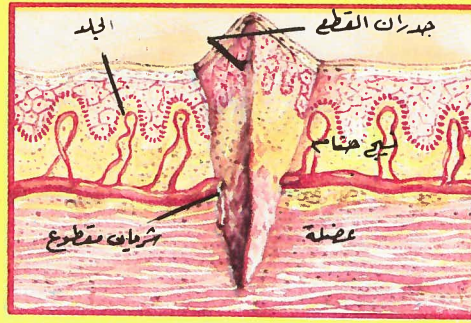 جدران القطع
الجلد
نسيج ضام
شريان مقطوع
عضلة